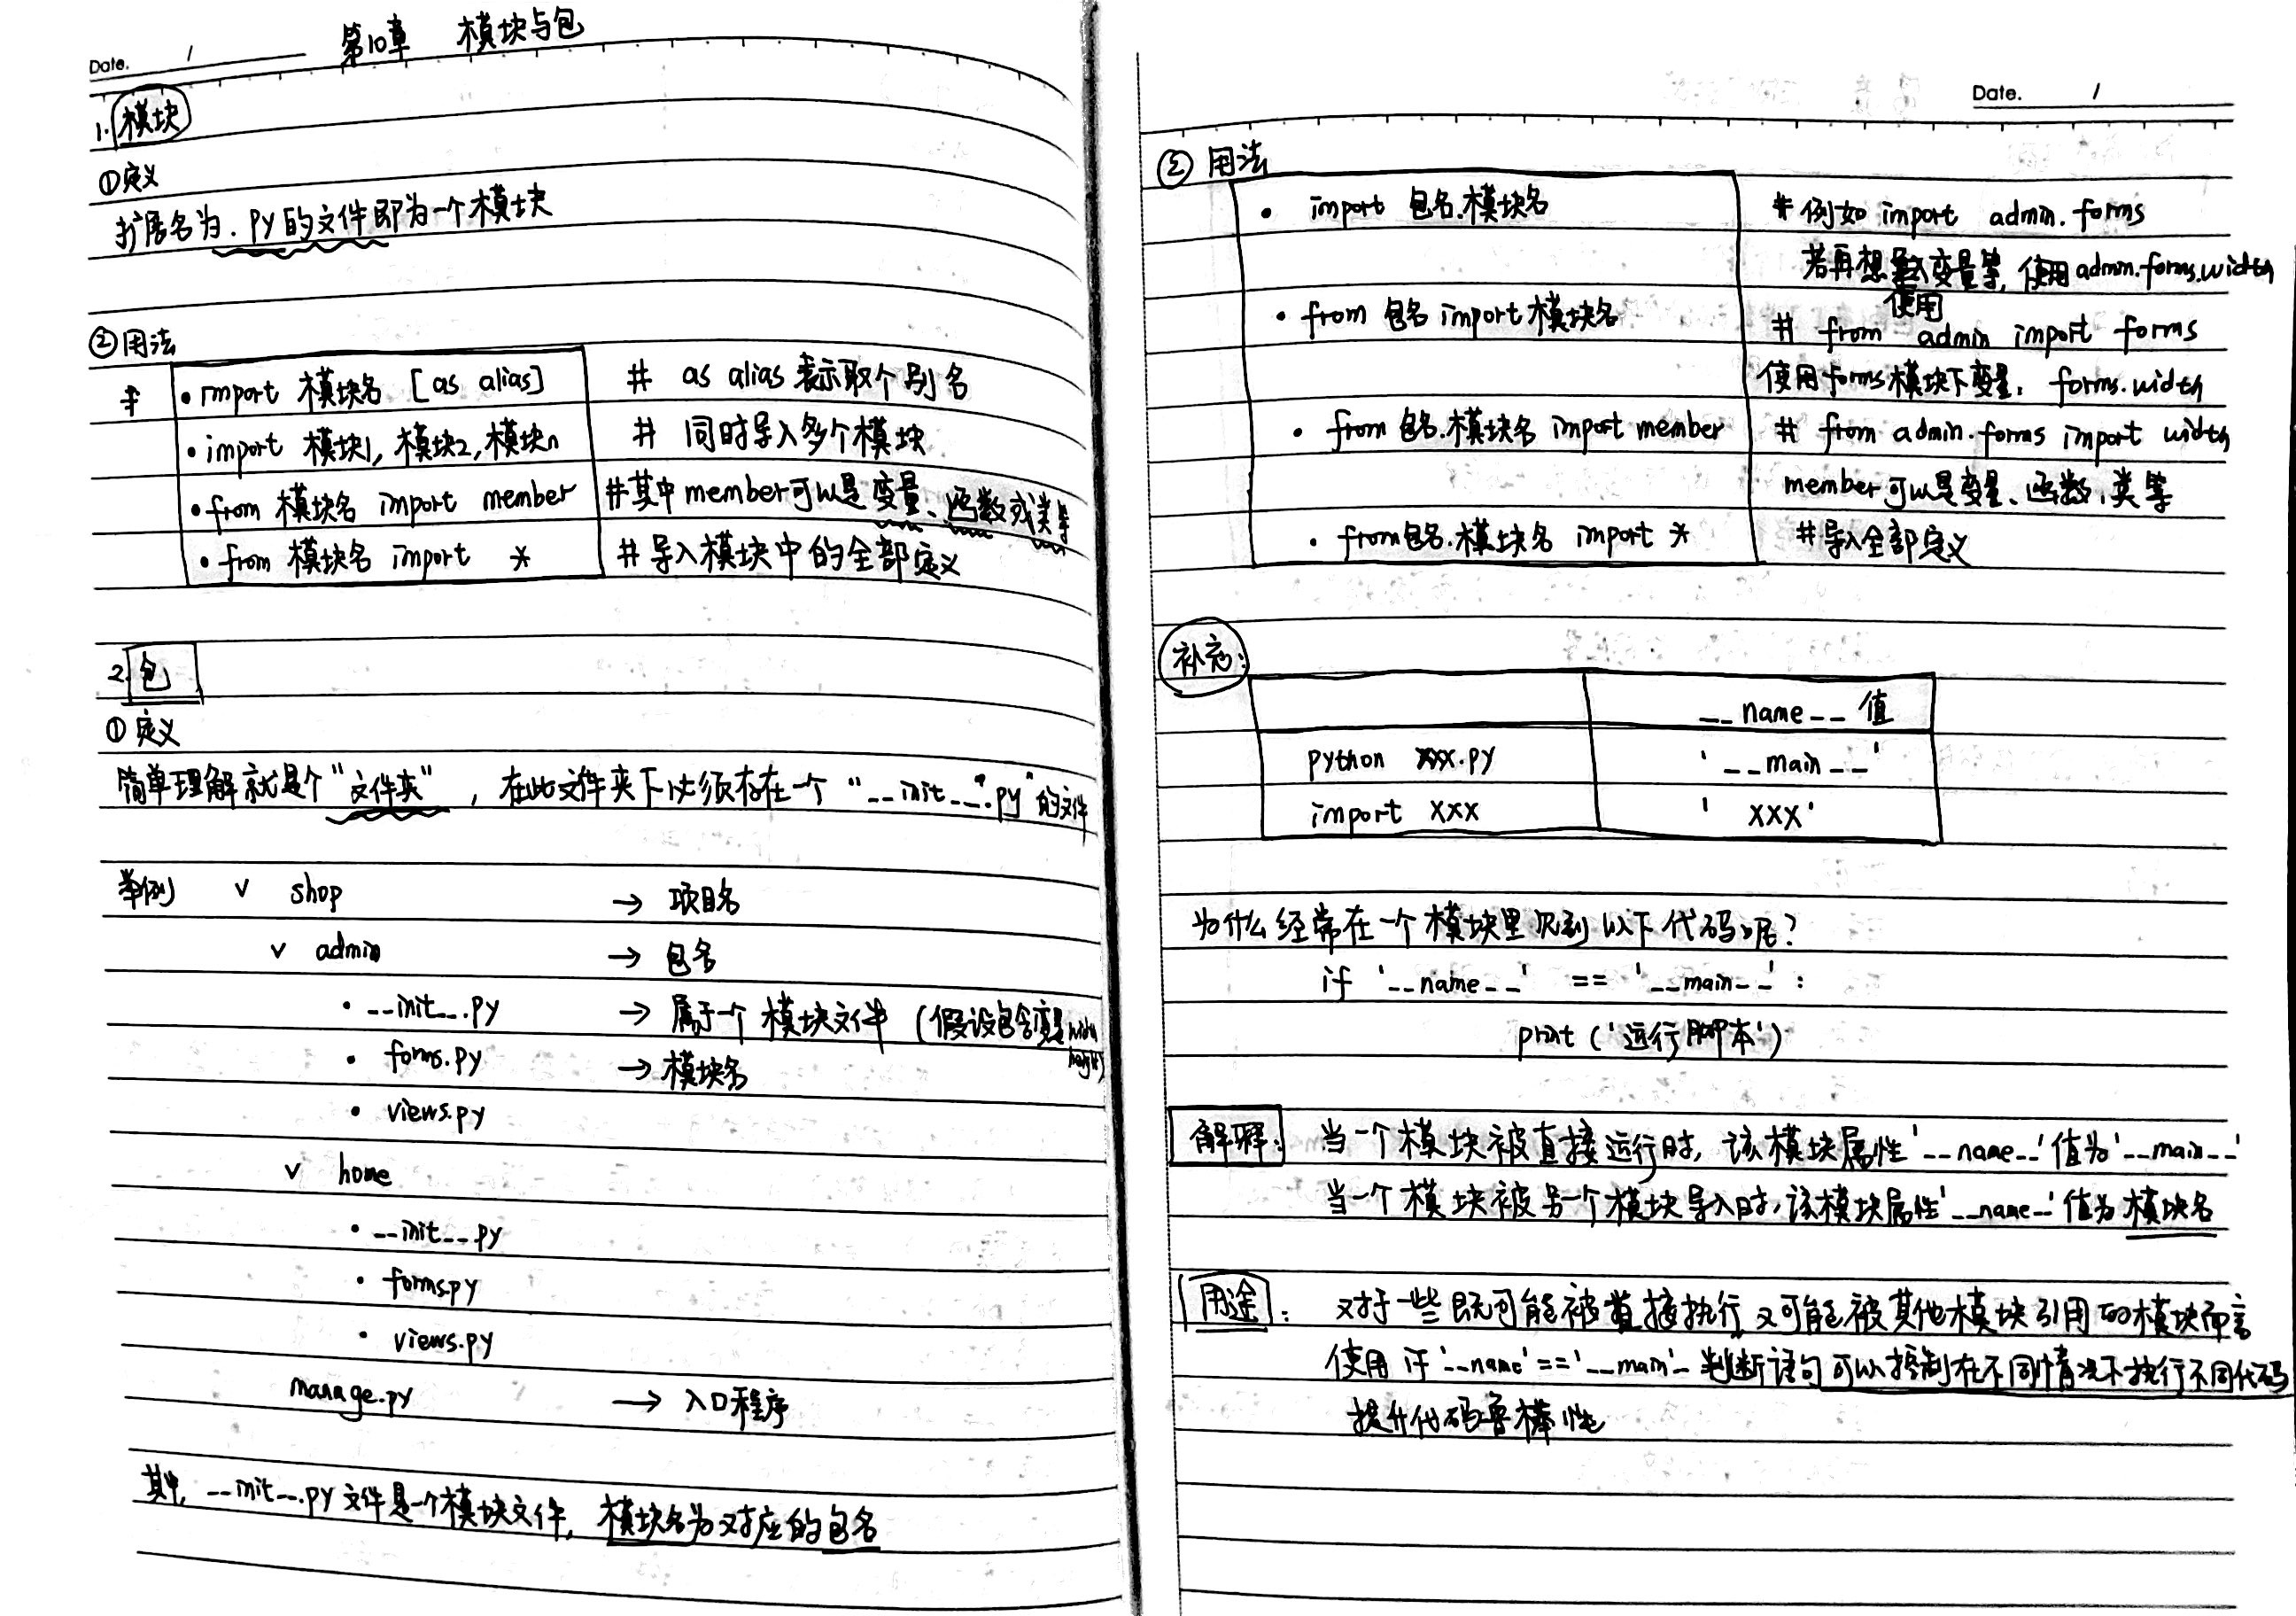 Date. /
第10章 模块与包
1. 模块
①定义
扩展名为.py的文件即为一个模块
②用法
• import 模块名 [as alias] # as alias 表示取个别名
• import 模块1, 模块2, 模块n # 同时导入多个模块
• from 模块名 import member #其中member可以是变量、函数或类等
• from 模块名 import * # 导入模块中的全部定义
2. 包
① 定义
简单理解就是个"文件夹", 在此文件夹下必须存在一个 "__init__.py"的文件
举例 ∨ shop → 项目名
∨ admin → 包名
• __init__.py → 属于一个模块文件 (假设包含变量width height)
• forms.py → 模块名
• views.py
∨ home
• __init__.py
• forms.py
• views.py
manage.py → 入口程序
其中, __init__.py文件是一个模块文件, 模块名为对应的包名
Date. /
② 用法
• import 包名.模块名 # 例如 import admin.forms
若再想 变量等, 使用admin.forms.width
使用
• from 包名 import 模块名 # from admin import forms
使用forms模块下变量: forms.width
• from 包名.模块名 import member # from admin.forms import width
member可以是变量、函数、类等
• from包名.模块名 import * #导入全部定义
补充:
__name__ 值
python xxx.py '__main__'
import xxx 'xxx'
为什么经常在一个模块里见到以下代码呢?
if '__name__' == '__main__':
print('运行脚本')
解释: 当一个模块被直接运行时, 该模块属性'__name__'值为'__main__'
当一个模块被另一个模块导入时, 该模块属性'__name__'值为模块名
用途: 对于一些既可能被直接执行又可能被其他模块引用的模块而言
使用 if '__name'=='__main'_ 判断语句可以控制在不同情况下执行不同代码
提升代码鲁棒性